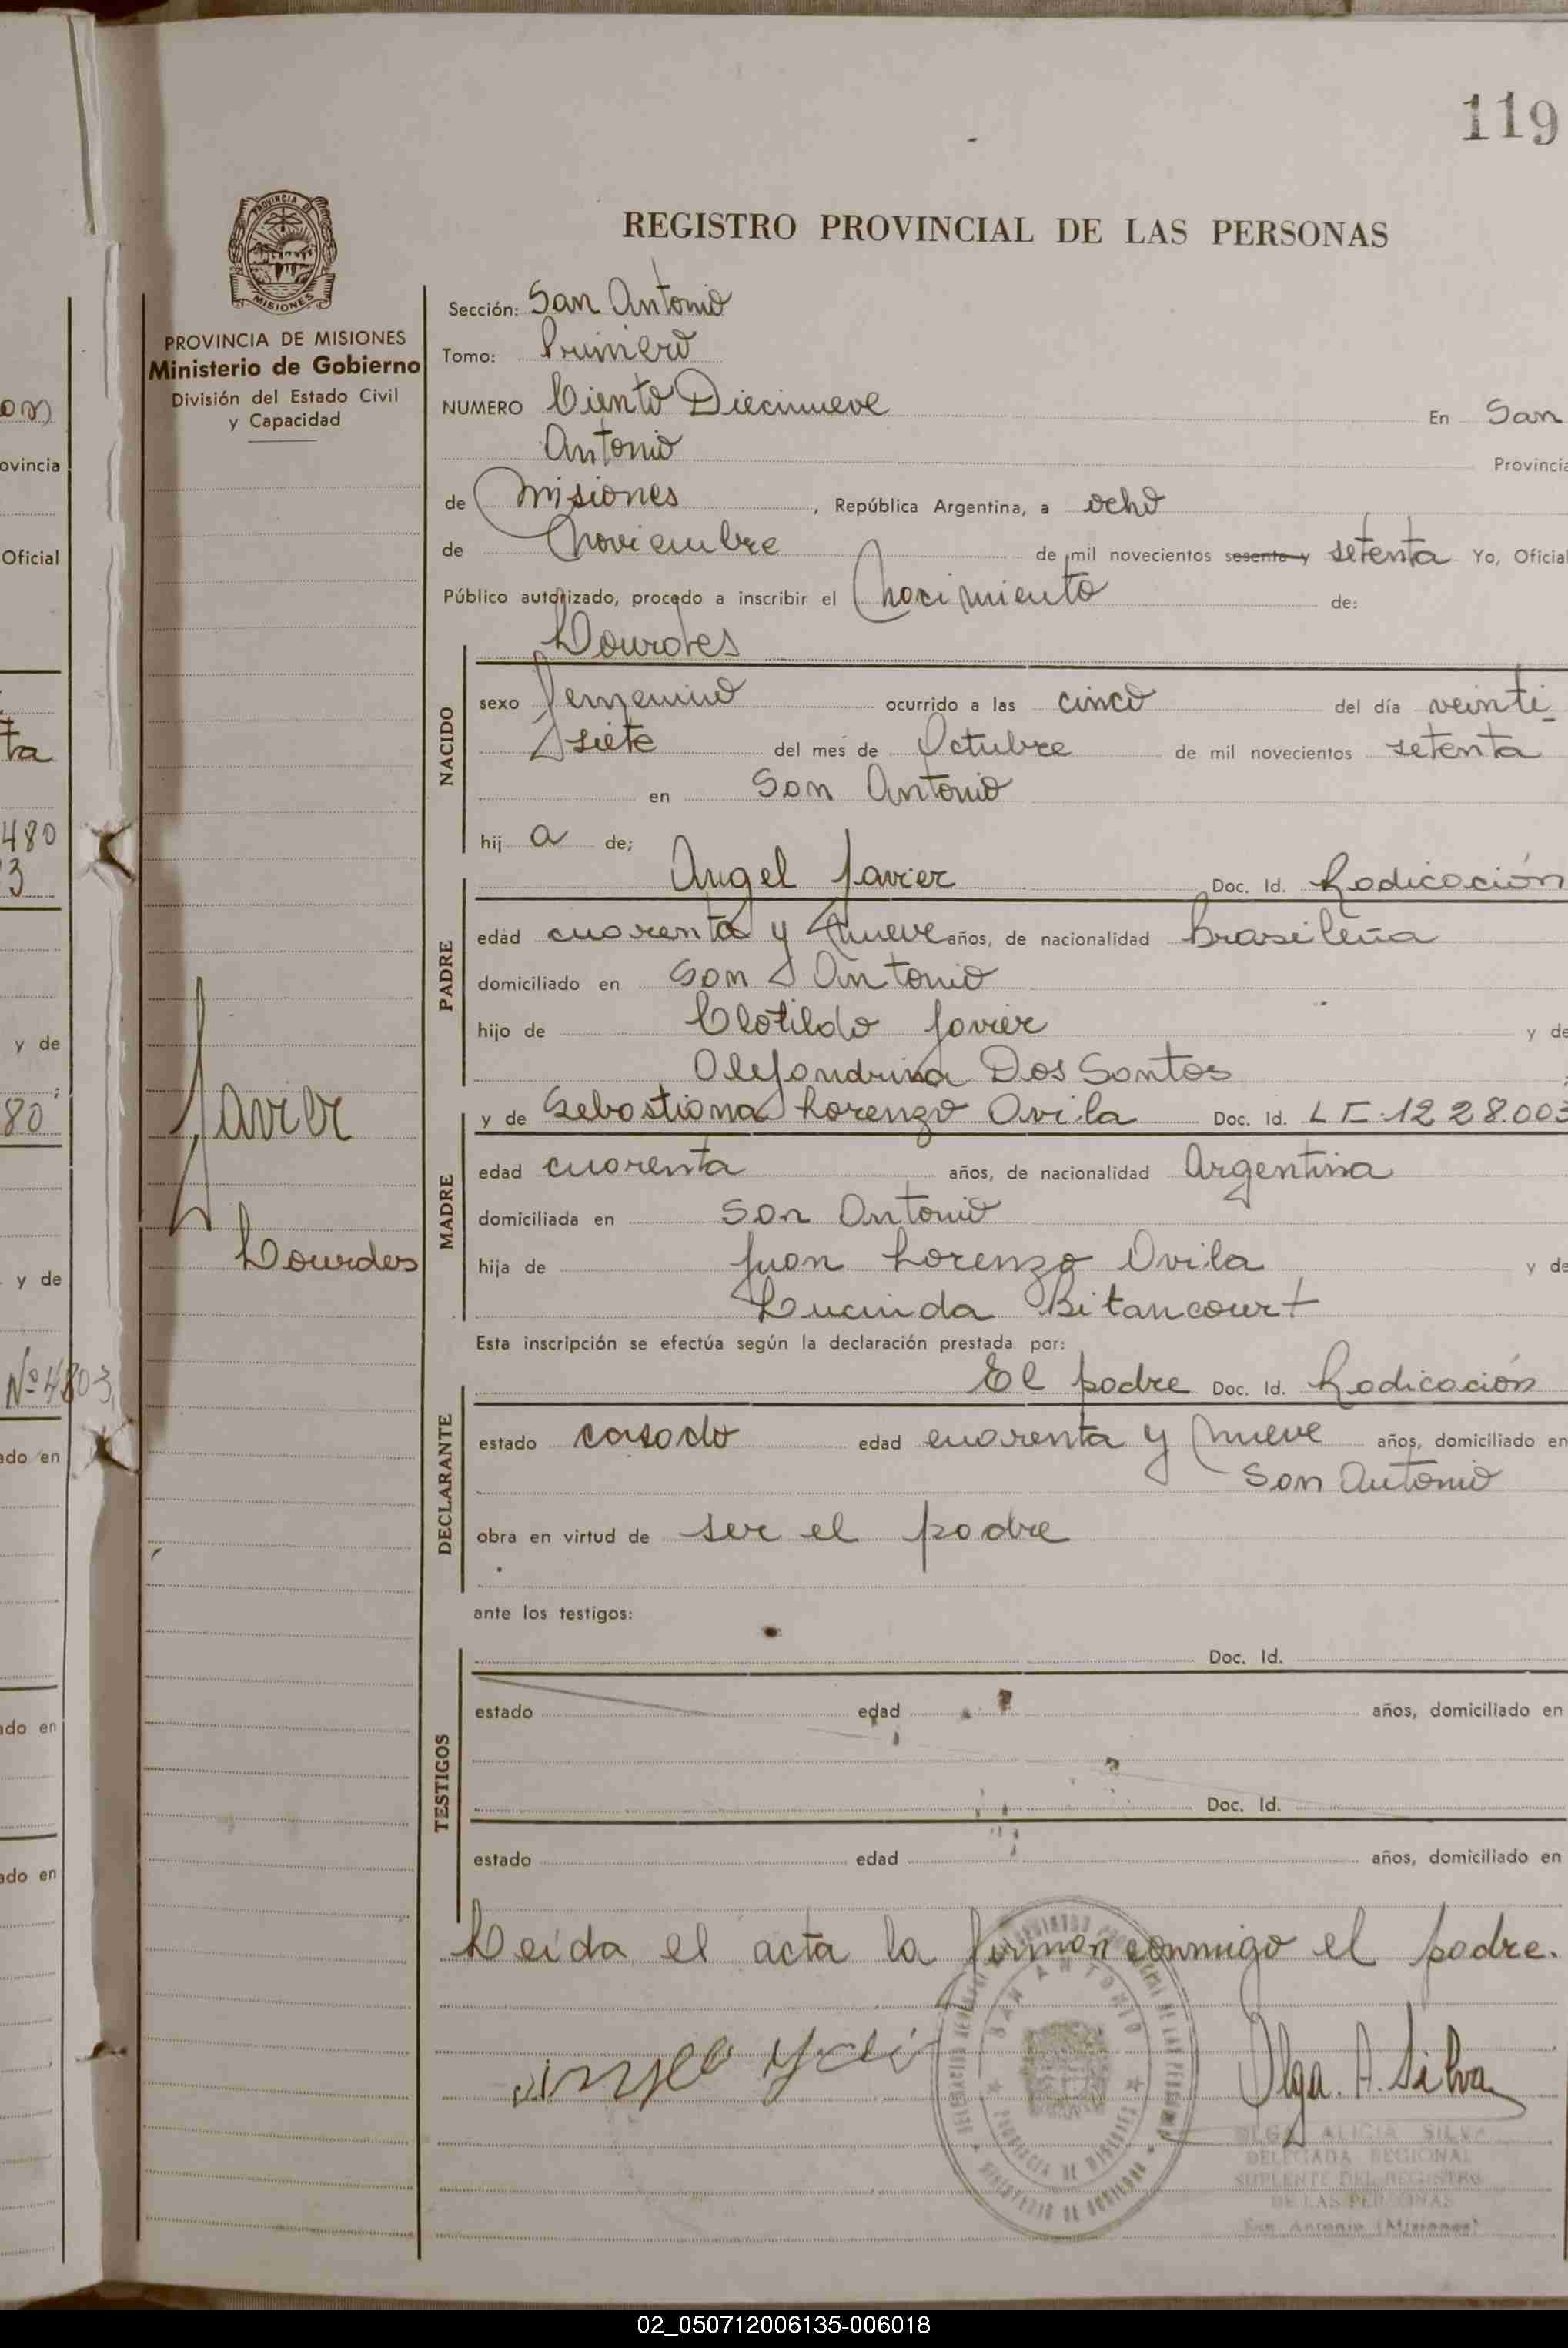 119
REGISTRO PROVINCIAL DE LAS PERSONAS
PROVINCIA DE
MISIONES
PROVINCIA DE MISIONES
Ministerio de Gobierno
División del Estado Civil
y Capacidad
Sección: San Antonio
Tomo: Primero
NUMERO Ciento Diecinueve En San
Antonio Provincia
de Misiones, República Argentina, a ocho
de Noviembre de mil novecientos sesenta y setenta Yo, Oficial
Público autorizado, procedo a inscribir el Nacimiento de:
Lourdes
NACIDO
sexo femenino ocurrido a las cinco del día veinti-
siete del mes de Octubre de mil novecientos setenta
en San Antonio
hij a de;
Angel Javier Doc. Id. Radicación
PADRE
edad cuarenta y nueve años, de nacionalidad brasileña
domiciliado en San Antonio
hijo de Clotildo Javier y de
Alejandrina Dos Santos
y de Sebastiana Lorenzo Avila Doc. Id. LE 1228.003
MADRE
edad cuarenta años, de nacionalidad Argentina
domiciliada en San Antonio
hija de Juan Lorenzo Avila y de
Lucinda Bitancourt
Esta inscripción se efectúa según la declaración prestada por:
El padre Doc. Id. Radicación
DECLARANTE
estado casado edad cuarenta y nueve años, domiciliado en
San Antonio
obra en virtud de ser el padre
ante los testigos:
Doc. Id.
TESTIGOS
estado edad años, domiciliado en
Doc. Id.
estado edad años, domiciliado en
Leída el acta la firman conmigo el padre.
Olga. A. Silva
OLGA ALICIA SILVA
DELEGADA REGIONAL
SUPLENTE DEL REGISTRO
DE LAS PERSONAS
San Antonio (Misiones)
SAN ANTONIO
PROVINCIA DE MISIONES
MINISTERIO DE GOBIERNO
Javier
Lourdes
ovincia
Oficial
ta
480
3
y de
80
y de
Nº 4803
ado en
ado en
ado en
02_050712006135-006018